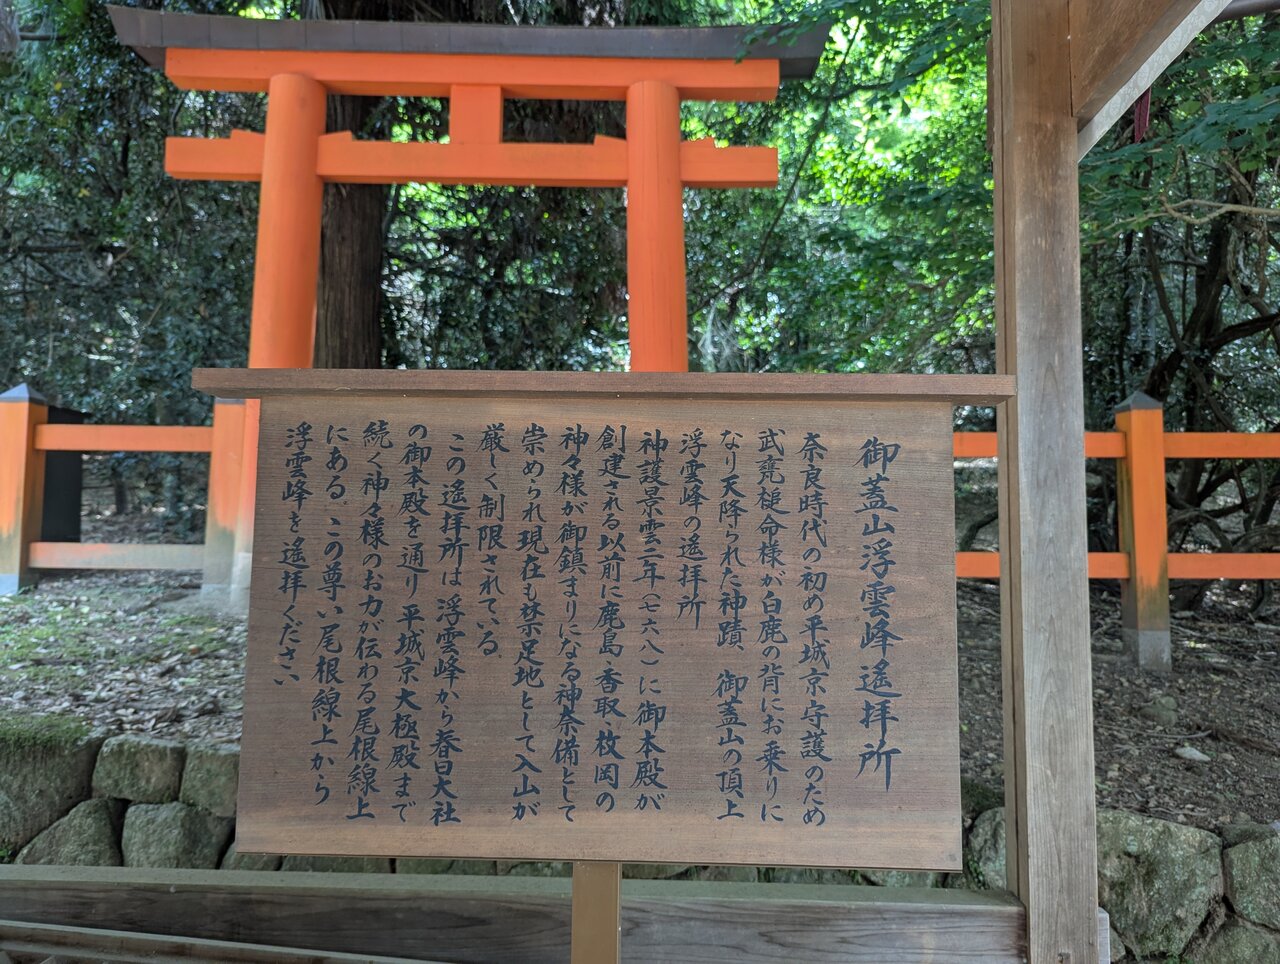 御蓋山浮雲峰遙拝所
奈良時代の初め平城京守護のため
武甕槌命様が白鹿の背にお乗りに
なり天降られた神蹟 御蓋山の頂上
浮雲峰の遙拝所
神護景雲二年(七六八)に御本殿が
創建される以前に鹿島・香取・枚岡の
神々様が御鎮まりになる神奈備として
崇められ現在も禁足地として入山が
厳しく制限されている。
この遙拝所は浮雲峰から春日大社
の御本殿を通り平城京大極殿まで
続く神々様のお力が伝わる尾根線上
にある。この尊い尾根線上から
浮雲峰を遙拝ください